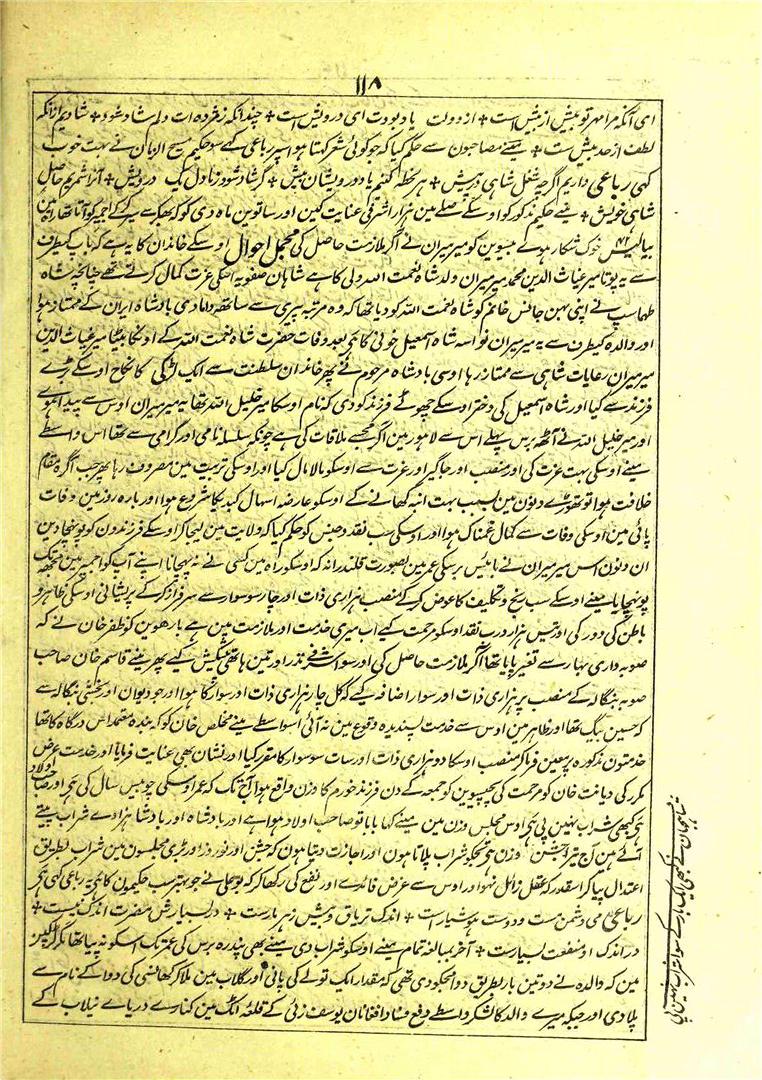 ۱۱۸
ای آنکه مرا مهر تو بیش از بیش است + از دولت یاد بودت ای درویش است + چندانکه زمژده ات دلم شاد شود + شادیم ازانکه
لطف از حد بیش است + مینے مصاحبون سے حکم کیا کہ جو کوئی شعر کہتا ہو اسپر رباعی کہے سو حکیم مسیح الزمان نے بہت خوب
کہی رباعی داریم اگرچہ شغل شاہی در پیش + ہر لحظہ کنیم یاد درویشان بیش + گر شاد شود ز ما دل یک درویش + آنرا شمریم حاصل
شاہی خویش + مینے حکیم مذکور کو اوسکے صلے مین ہزار اشرفی عنایت کین اور ساتوین ماہ دی کو کہ پھکر سے سیر کرکے اجمیر کو آتا تھا راہ مین
بیالیس خوک شکار ہوئے بیسوین کو میر میران نے آکر ملازمت حاصل کی مجمل احوال اوسکے خاندان کا یہ ہے کہ باپ کیطرف
سے یہ پوتا میر غیاث الدین محمد میر میران ولد شاہ نعمت اللہ ولی کا ہے شاہان صفویہ انکی عزت کمال کرتے تھے چنانچہ شاہ
طہماسپ نے اپنی بہن جانس خانم کو شاہ نعمت اللہ کو دیا تھا کہ وہ مرتبہ پیری سے ساتھ دامادی بادشاہ ایران کے ممتاز ہوا
اور والدہ کیطرف سے یہ میر میران نواسہ شاہ اسمعیل خونی کا ہی بعد وفات حضرت شاہ نعمت اللہ کے اونکا بیٹا میر غیاث الدین
میر میران رعایات شاہی سے ممتاز رہا اوسی بادشاہ مرحوم نے پھر خاندان سلطنت سے ایک لڑکی کا نکاح اوسکے بڑے
فرزند سے کیا اور شاہ اسمعیل کی دختر اوسکے چھوٹے فرزند کو دی کہ نام اوسکا میر خلیل اللہ تھا یہ میر میران اوس سے پیدا ہوئے
اور میر خلیل اللہ نے آٹھ برس پہلے اس سے لاہور مین آکر مجھسے ملاقات کی ہے چونکہ سلسلہ نامی اور گرامی سے تھا اس واسطے
مینے اوسکی بہت عزت کی اور منصب اور جاگیر اور عزت سے اوسکو مالا مال کیا اور اوسکی تربیت مین مصروف رہا پھر جب آگرہ مقام
خلافت ہوا تو تھوڑے دنون مین بسبب بہت انبہ کھانے کے اوسکو عارضہ اسہال کبدیکا شروع ہوا اور بارہ روز مین وفات
پائی مین اوسکی وفات سے کمال غمناک ہوا اور اوسکی سب نقد و جنس کو حکم کیا کہ ولایت مین لیجاکر اوسکے فرزندون کو پونچا دین
ان دنون اس میر میران نے بائیس برسکی عمر مین بصورت قلندرانہ کہ اوسکو راہ مین کسی نے نہ پہچانا اپنے آپکو اجمیر مین مجھ تک
پونچایا مینے اوسکے سب رنج و تکلیف کا عوض کرکے منصب ہزاری ذات اور چار سو سوار سے سرفراز کرکے پریشانی اوسکی ظاہر و
باطن کی دور کی اور تیس ہزار درب نقد اوسکو مرحمت کیے اب میری خدمت اور ملازمت مین ہے بارھوین کو ظفر خان نے کہ
صوبہ داری بہار سے تغیر پایا تھا آکر ملازمت حاصل کی اور سو اشرفی نذر اور تین ہاتھی پیشکش کیے پھر مینے قاسم خان صاحب
صوبہ بنگالہ کے منصب پر ہزاری ذات اور سوار اضافہ کیے کہ کل چار ہزاری ذات اور سوار کا ہوا اور جو دیوان اور بخشی بنگالہ سے
کہ حسین بیگ تھا اور طاہر مین اوس سے خدمت پسندیدہ وقوع مین نہ آئی اسواسطے مینے مخلص خان کو کہ بندہ معتمد اس درگاہ کا تھا
خدمتون مذکورہ پر معین فرماکر منصب اوسکا دو ہزاری ذات اور سات سو سوار کا مقرر کیا اور نشان بھی عنایت فرمایا اور خدمت عرض
مکرر کی دیانت خان کو مرحمت کی پچیسوین کو جمعہ کے دن فرزند خورم کا وزن واقع ہوا آج تک کہ عمر اوسکی چوبیس سال کی ہی اور صاحب اولاد
ہی کبھی شراب نہین پی ہی اوس مجلس وزن مین مینے کہا بابا تو صاحب اولاد ہوا ہے اور بادشاہ اور بادشاہزادے شراب پیتے
آئے ہین آج تیرا جشن وزن ہی تجکو شراب پلاتا ہون اور اجازت دیتا ہون کہ جشن اور نوروز اور بڑی مجلسون مین شراب بطریق
اعتدال پیا کر اسقدر کہ عقل زائل نہو اور اوس سے غرض فائدے اور نفع کی رکھا کر کہ بوعلی نے جو بہتر سب حکیمون کا ہی یہ رباعی کہی ہی
رباعی می دشمن مست و دوست ہشیار است + اندک تریاق و بیش زہر مار است + در بسیارش مضرت اندک نیست +
در اندک او منفعت بسیار است + آخر بمبالغہ تمام مینے اوسکو شراب دی مینے بھی پندرہ برس کی عمر تک اسکو نہ پیا تھا مگر لڑکپن
مین کہ والدہ نے دو تین بار بطریق دوا مجکو دی تھی کہ مقدار ایک تولے کی پانی اور گلاب مین ملاکر کھانسی کی دوا کے نام سے
پلا دی اور جبکہ میرے والد کا لشکر واسطے دفع فساد افغانان یوسف زئی کے قلعہ اٹک مین کنارے دریاے نیلاب کے